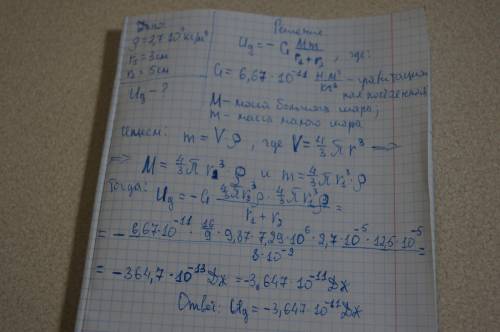 Дано:
ρ = 2,7·10³ кг/м³
r₁ = 3см
r₂ = 5см
Ug - ?
Решение
Ug = - G Mm / r₁ + r₂ , где:
G = 6,67·10⁻¹¹ Н·м²/кг² - гравитацион
ная постоянная
M - масса большого шара,
m - масса малого шара
Имеем: m = Vρ, где V = 4/3 π r³ ⟹
⟹ M = 4/3 π r₂³ ρ и m = 4/3 π r₁³ · ρ
Тогда: Ug = - G 4/3 π r₂³ ρ · 4/3 π r₁³ ρ / r₁ + r₂ =
= - 6,67·10⁻¹¹ · 16/9 · 9,87 · 7,29·10⁶ · 2,7·10⁻⁵ · 12,5·10⁻⁵ / 8·10⁻² =
= -364,7·10⁻¹³ Дж = -3,647·10⁻¹¹ Дж
Ответ: Ug = -3,647·10⁻¹¹ Дж